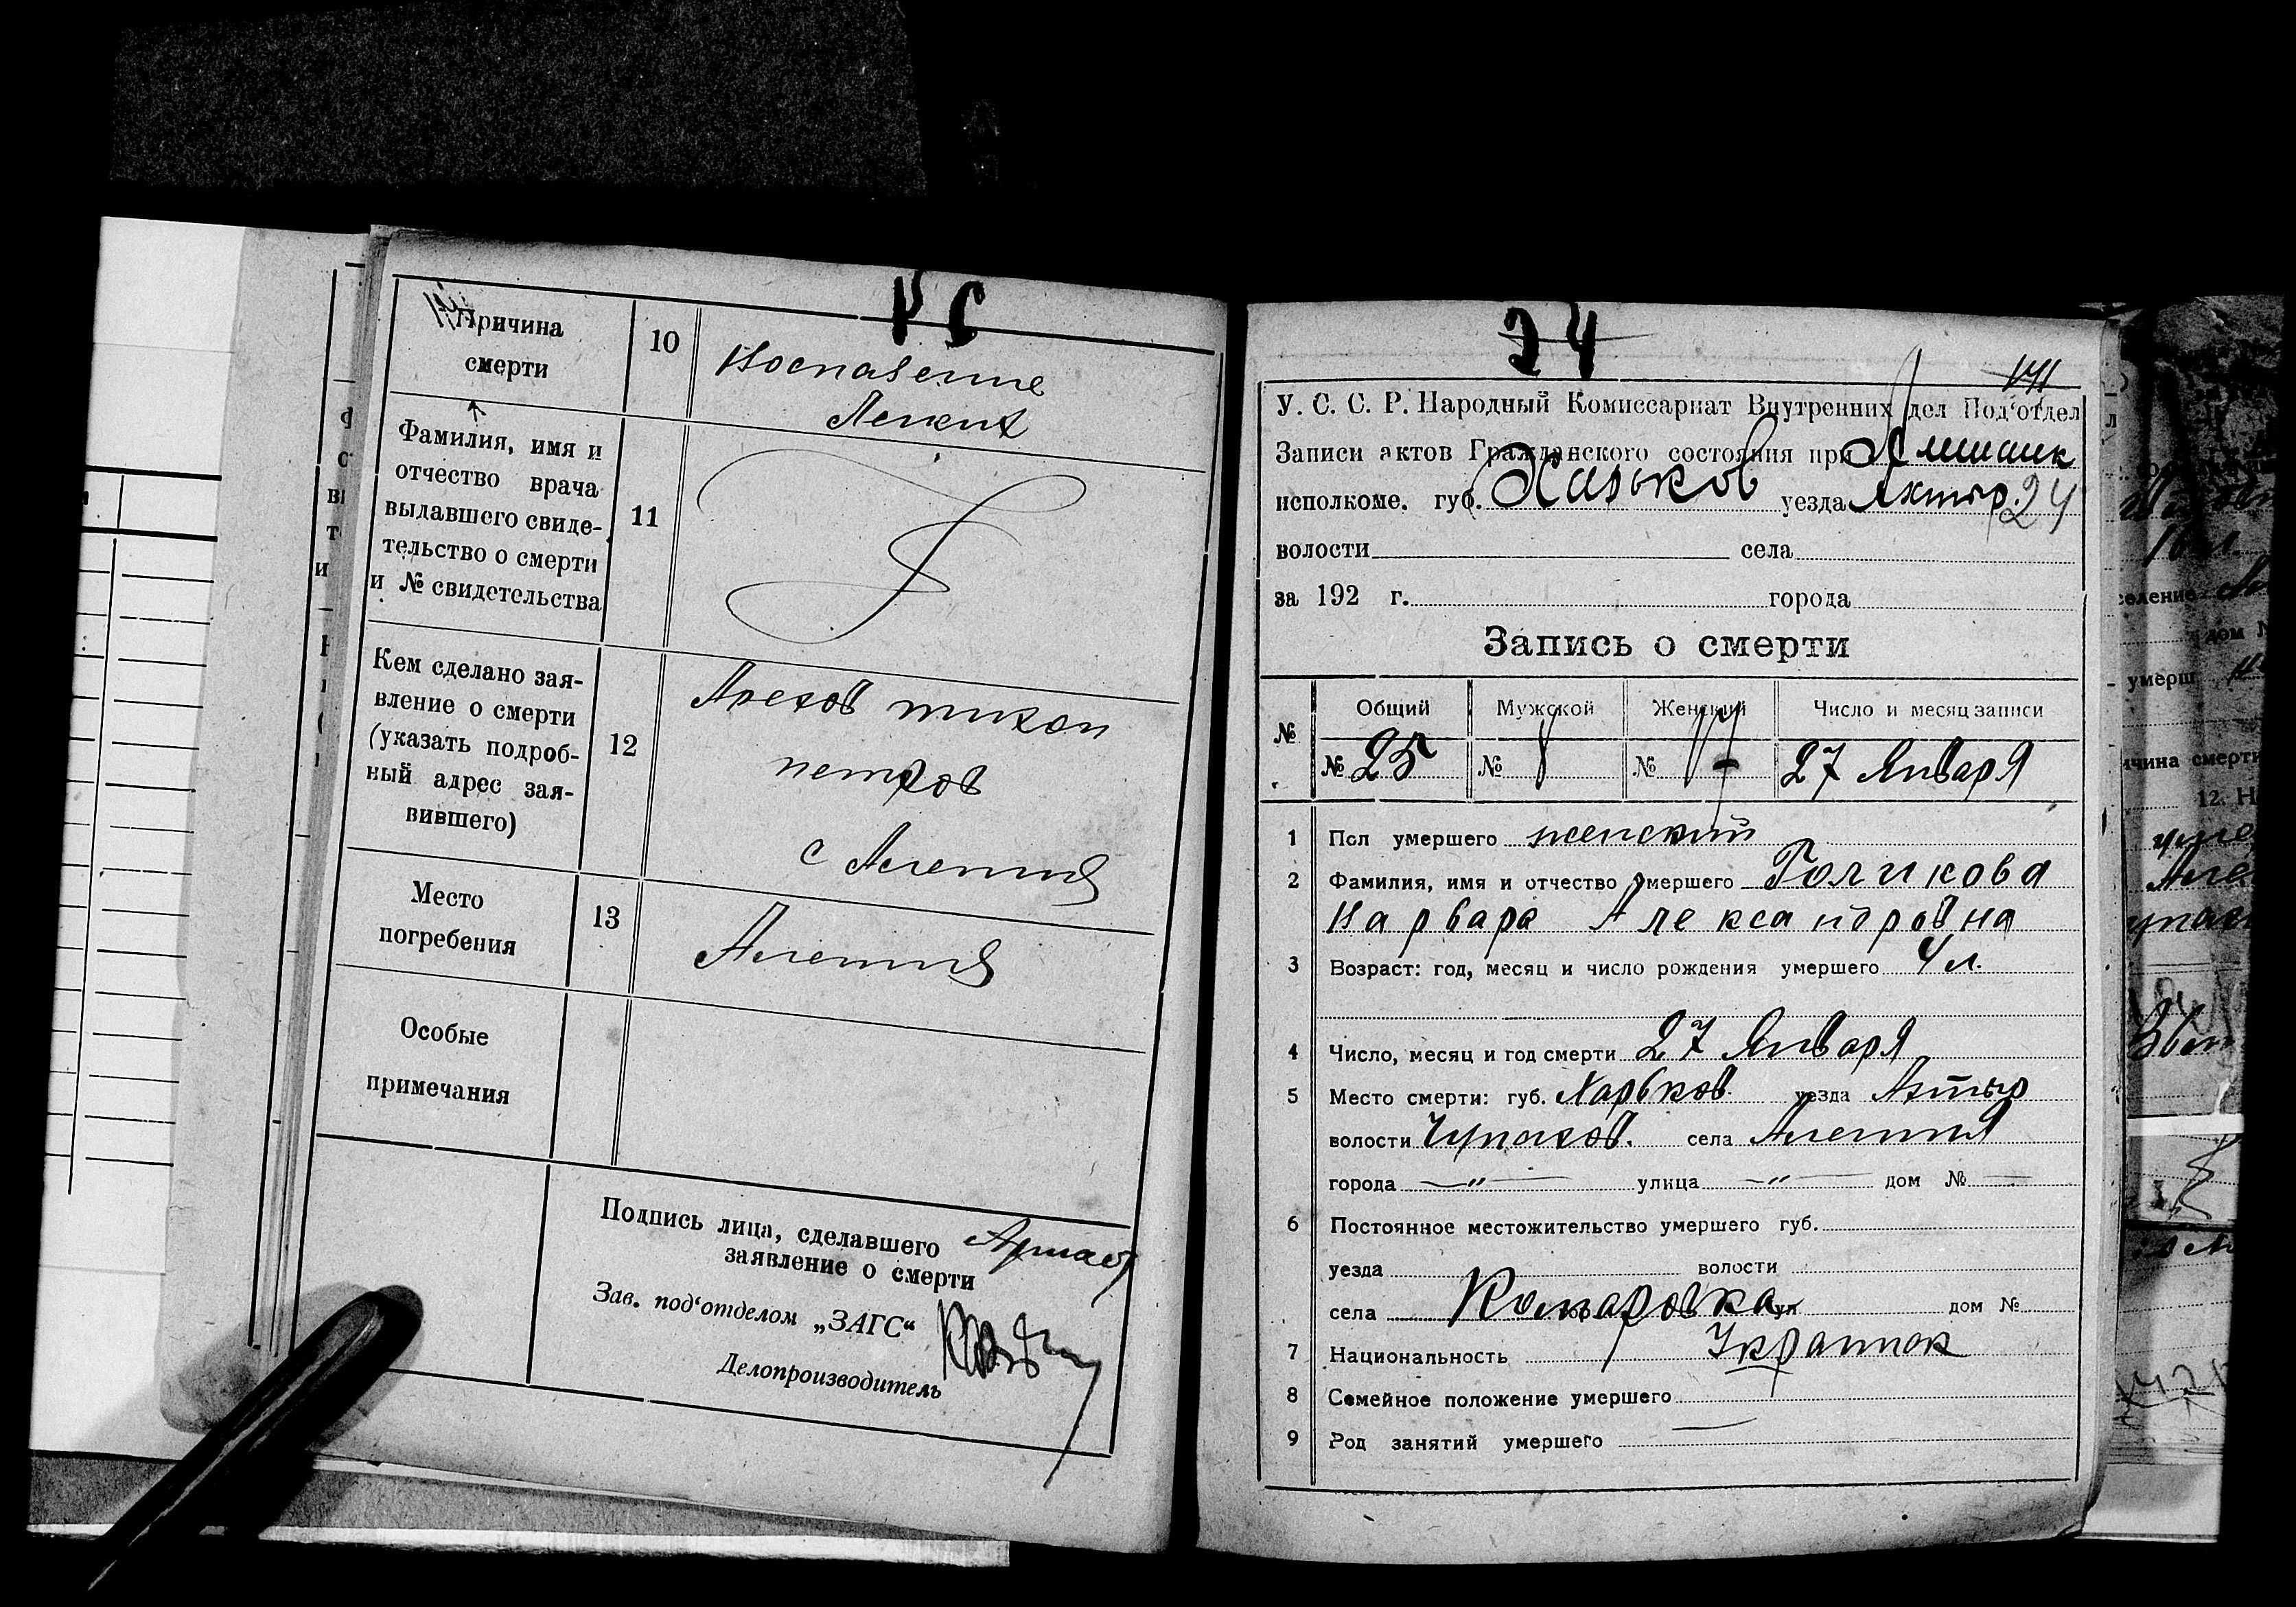 Причина
смерти
10
Воспаление
Легких
Фамилия, имя и
отчество врача
выдавшего свиде-
тельство о смерти
и № свидетельства
11
Кем сделано зая-
вление о смерти
(указать подроб-
ный адрес зая-
вившего)
12
тихон
петров
с Алешня
Место
погребения
13
Алешня
Особые
примечания
Подпись лица, сделавшего
заявление о смерти
Зав. под‘отделом „ЗАГС“
Делопроизводитель
24
171
У. С. С. Р. Народный Комиссариат Внутренних дел Под‘отдел
Записи актов Гражданского состояния при
исполкоме. губ. Харьков уезда Ахтыр. 24
волости села
за 192 г. города
Запись о смерти
№ Общий Мужской Женский Число и месяц записи
№ 25 № № 27 Января
1 Пол умершего женский
2 Фамилия, имя и отчество умершего Голикова
Варвара Александровна
3 Возраст: год, месяц и число рождения умершего 4 л.
4 Число, месяц и год смерти 27 Января
5 Место смерти: губ. Харьков. уезда Ахтыр
волости Чупахов. села Алешня
города —"— улица —"— дом № —
6 Постоянное местожительство умершего губ.
уезда волости
села Комаровка ул дом №
7 Национальность
8 Семейное положение умершего
9 Род занятий умершего —